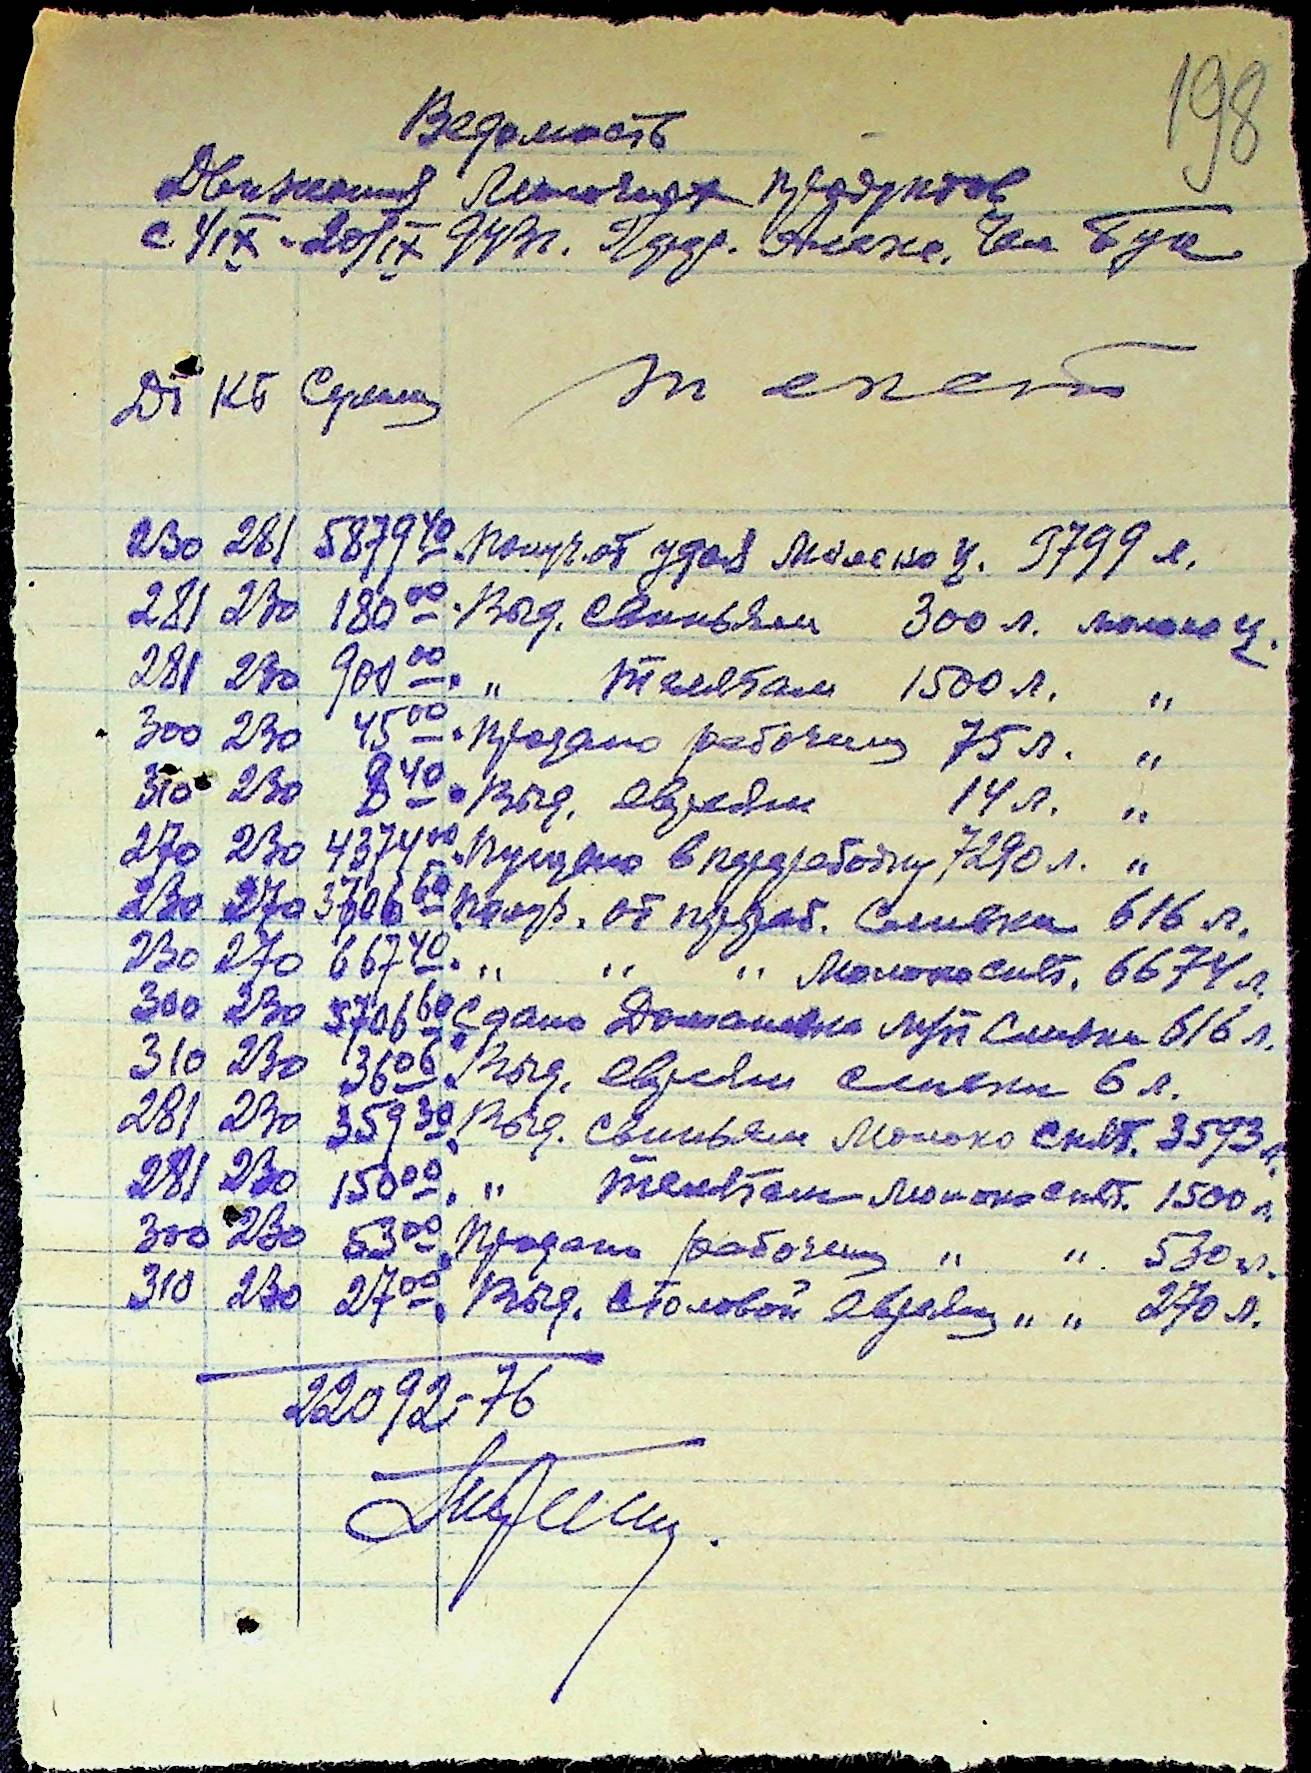 198
Ведомость
Движения Молочных продуктов
с 1/IX - 20/IX 943г. Алекс.
Дт Кт Сумма Текст
230 281 5879 40 Получ. от удоя молоко ц. 9799 л.
281 230 180 00 Выд. свиньям 300 л. молоко ц.
281 230 900 00 " телятам 1500 л. "
300 230 45 00 Продано рабочим 75 л. "
310 230 8 40 Выд. евреям 14 л. "
270 230 4374 00 Пущено в переработку 7290 л. "
230 270 3706 60 Получ. от перераб. Сливки 616 л.
230 270 667 40 " " " Молоко снят. 6674 л.
300 230 5706 60 Сдано Доманевка Сливки 616 л.
310 230 36 06 Выд. евреям сливки 6 л.
281 230 359 30 Выд. свиньям Молоко снят. 3593 л.
281 230 150 00 " телятам Молоко снят. 1500 л.
300 230 53 00 Продано рабочим " " 530 л.
310 230 27 00 Выд. столовой евреям " " 270 л.
22092-76